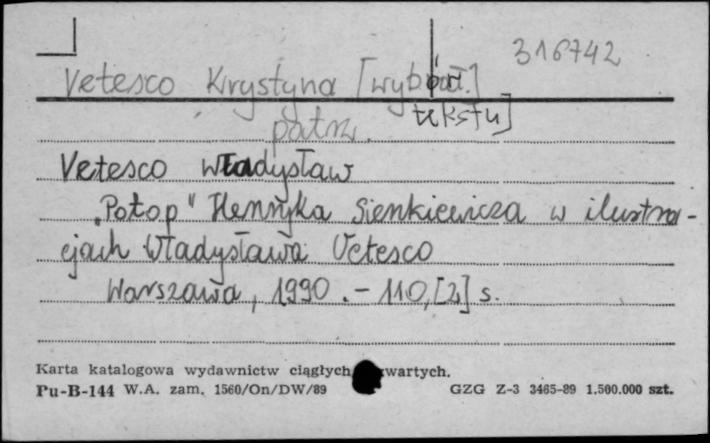 316742
Vetesco Krystyna [wybór
tekstu]
patrz.
Vetesco Władysław
„Potop" Henryka Sienkiewicza w ilustra-
cjach Władysława Vetesco
Warszawa, 1990. – 110, [2] s.
Karta katalogowa wydawnictw ciągłych wartych.
Pu-B-144 W.A. zam. 1560/On/DW/89 GZG Z-3 3465-89 1.500.000 szt.